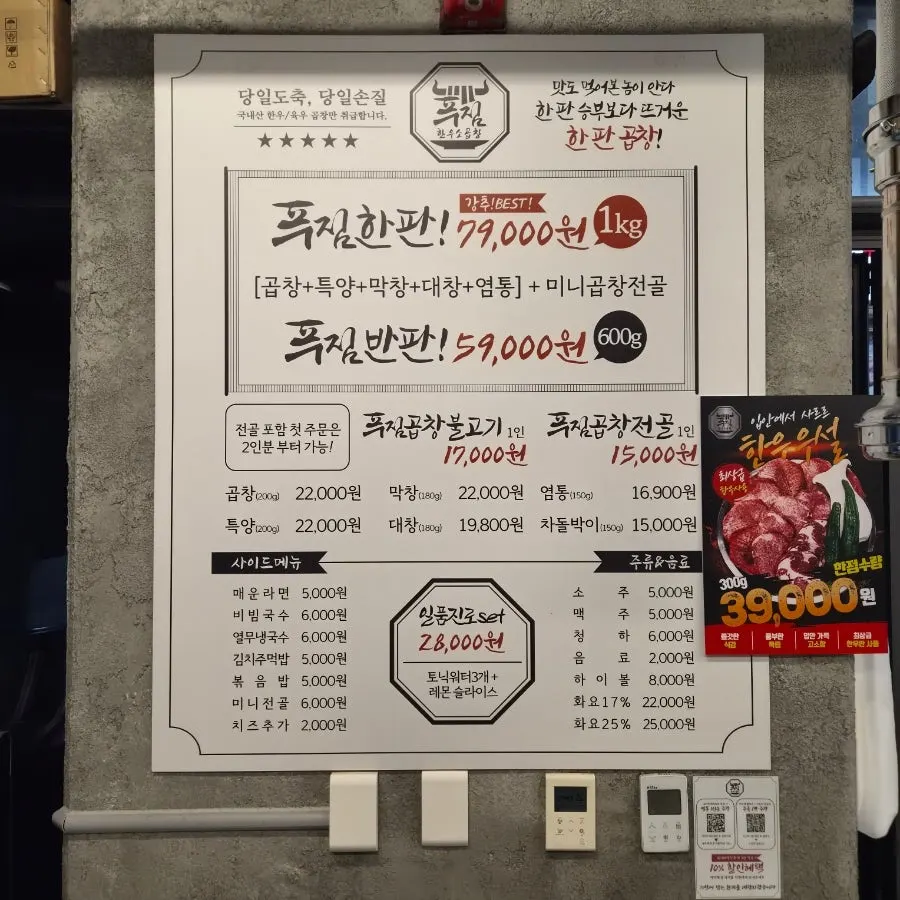 당일도축, 당일손질
국내산 한우/육우 곱창만 취급합니다.
★★★★★
푸짐
한우소곱창
맛도 먹어본 놈이 안다
한판 승부보다 뜨거운
한판 곱창!
푸짐한판! 강추!BEST! 79,000원 1kg
[곱창+특양+막창+대창+염통] + 미니곱창전골
푸짐반판! 59,000원 600g
전골 포함 첫 주문은
2인분 부터 가능!
푸짐곱창불고기 1인
17,000원
푸짐곱창전골 1인
15,000원
곱창(200g) 22,000원 막창(180g) 22,000원 염통(150g) 16,900원
특양(200g) 22,000원 대창(180g) 19,800원 차돌박이(150g) 15,000원
사이드메뉴
매운라면 5,000원
비빔국수 6,000원
열무냉국수 6,000원
김치주먹밥 5,000원
볶음밥 5,000원
미니전골 6,000원
치즈추가 2,000원
일품진로set
28,000원
토닉워터3개+
레몬 슬라이스
주류&음료
소주 5,000원
맥주 5,000원
청하 6,000원
음료 2,000원
하이볼 8,000원
화요17% 22,000원
화요25% 25,000원
입안에서 사르르
한우우설
최상급
300g
39,000원
한정수량
10% 할인혜택